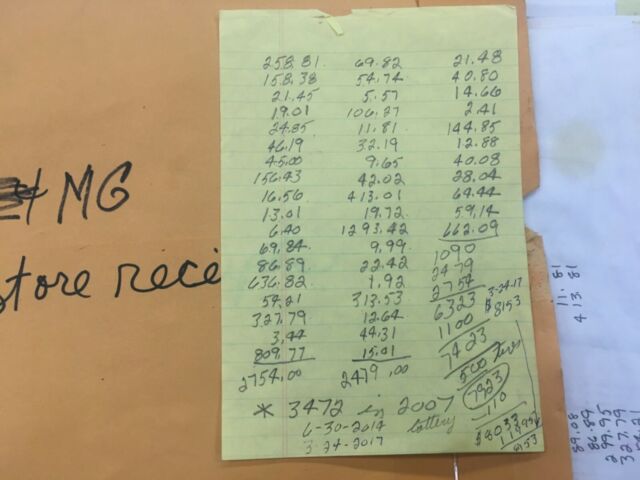 258.81 69.82 21.48
158.38 54.74 40.80
21.45 5.57 14.66
19.01 106.27 2.41
24.85 11.81 144.85
46.19 32.19 12.88
45.00 9.65 40.08
156.43 42.02 28.04
16.56 413.01 64.44
13.01 19.72 59.14
6.40 1293.42 662.09
69.84 9.99 1090
86.89 22.42 2479
636.82 1.92 2754
54.21 313.53 6323
327.79 12.64 1100
3.44 44.31 7423
809.77 15.01 500
2754.00 2479.00 7923
3-24-17
$8153
110
* 3472 in 2007
lottery
6-30-2014
3-24-2017
$8033
8153
MG
store rece
11.81
413.81
89.08
86.89
299.95
327.79